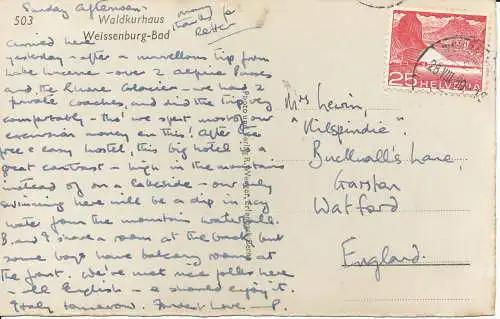 Sunday afternoon.
503 Waldkurhaus
Weissenburg-Bad
many
thanks for
letter
arrived here
yesterday - after a marvellous trip from
Lake Lucerne - over 2 Alpine Passes
and the Rhone Glacier - we had 2
private coaches, and did the trip very
comfortably - tho' we spent most of our
excursion money on this! After the
free & easy hostel, this big hotel is a
great contrast - high in the mountains
instead of on a lakeside - our only
swimming here will be a dip in icy
water from the mountain waterfall.
B. and I share a room at the back, but
some boys have balcony rooms at
the front. We've met nice folks here
- all English - & shared enjoy it.
tomorrow. Fondest Love - P.
Photo und Verlag R.
25
HELVETIA
Mrs Lewin,
"Kilspindie",
Bucknall's Lane,
Garston
Watford
England.